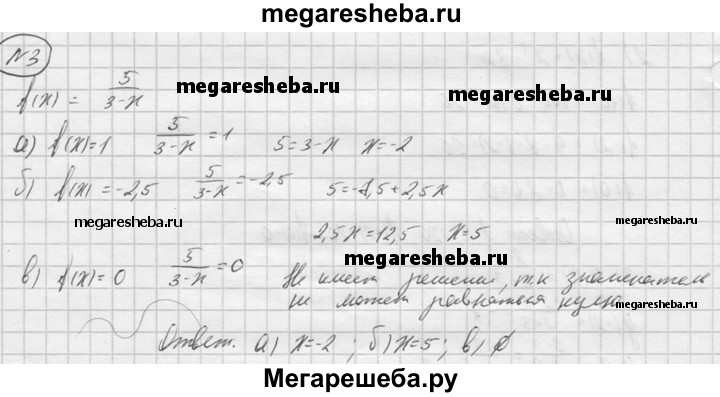 megaresheba.ru
№3
f(x) = 5/(3-x)
megaresheba.ru
megaresheba.ru
а) f(x)=1 5/(3-x)=1 5=3-x x=-2
б) f(x)=-2,5 5/(3-x)=-2,5 5=-7,5+2,5x
megaresheba.ru
megaresheba.ru
2,5x=12,5 x=5
megaresheba.ru
в) f(x)=0 5/(3-x)=0 Не имеет решений, т.к знаменатель
не может равняться нулю
megaresheba.ru
Ответ. а) x=-2; б) x=5; в) ∅
Мегарешеба.ру